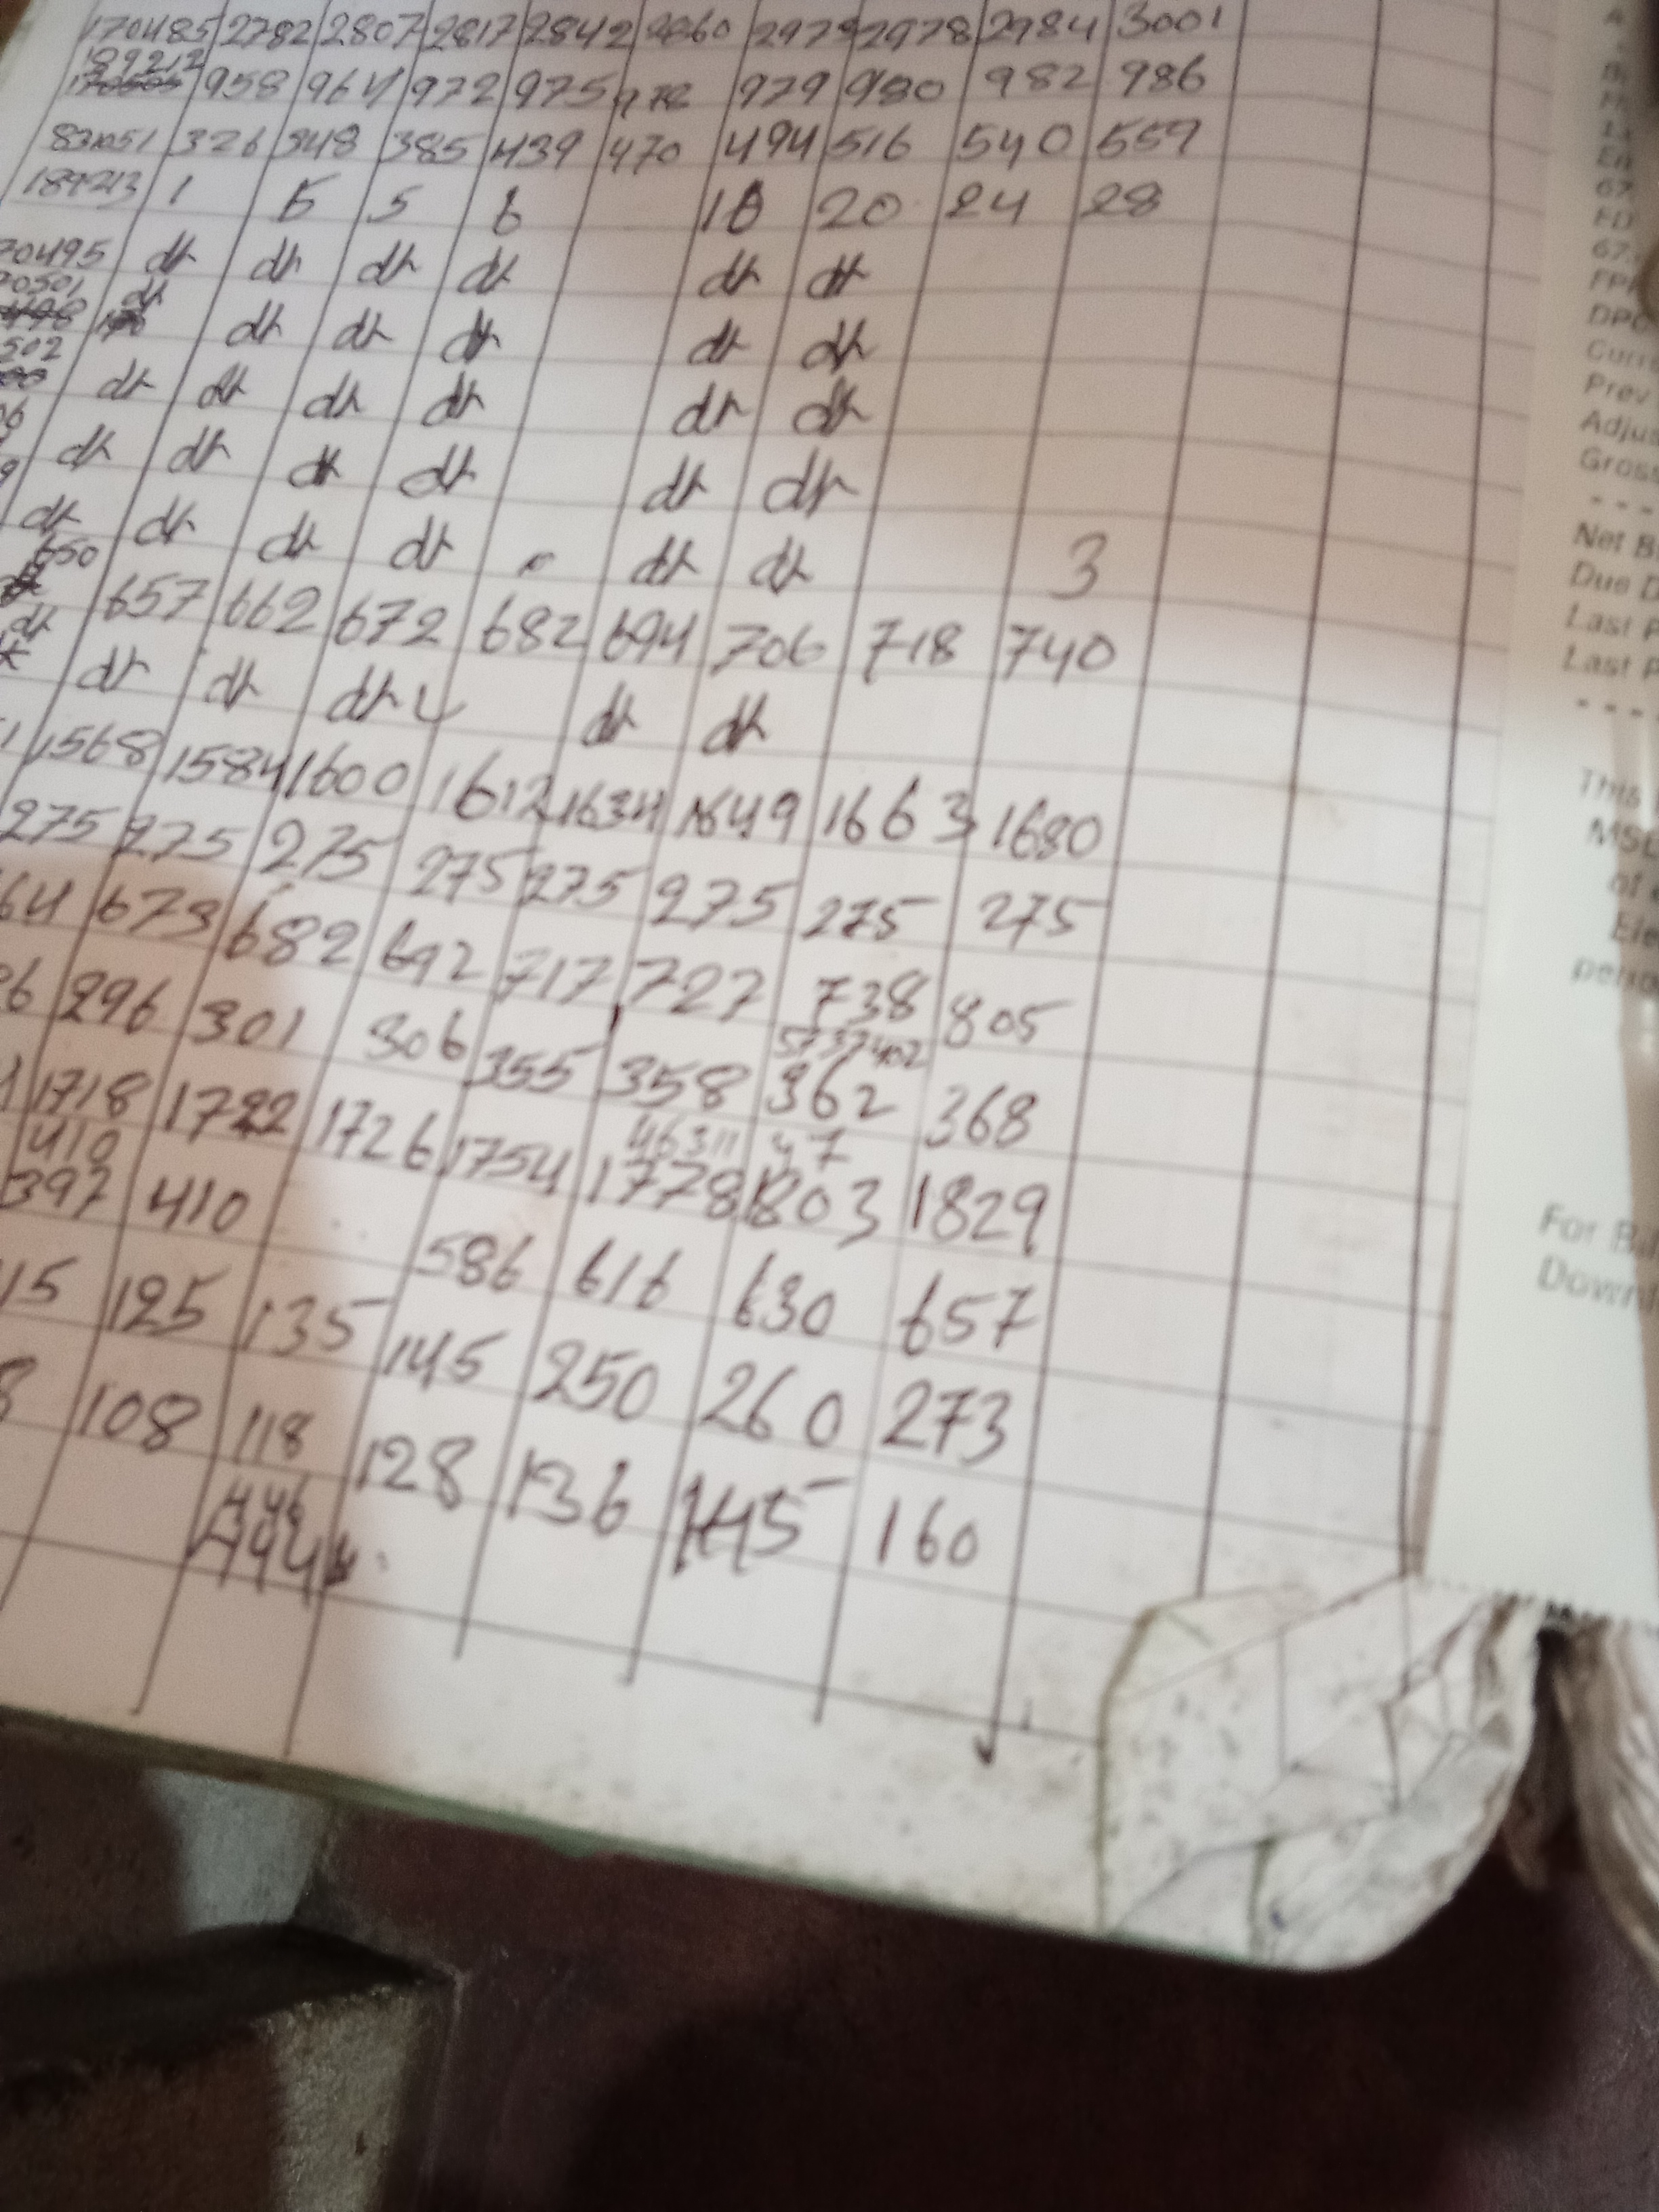 170485 2782 2807 2817 2842 2860 2979 2978 2984 3001
189212
958 964 972 975 978 979 980 982 986
326 348 385 439 470 494 516 540 559
189213 1 5 5 6 18 20 24 28
70495 dr dr dr dr dr dr
70501 dr
dr dr dr dr dr
502
dr dr dr dr dr dr
06
dr dr dr dr dr dr
dr dr dr dr dr dr 3
650
657 662 672 682 694 706 718 740
dr
dr dr dr dr dr
1568 1584 1600 1612 1634 1649 1663 1680
275 275 275 275 275 275 275 275
64 673 682 692 717 727 738 805
5737402
86 296 301 306 355 358 362 368
46311 47
1718 1722 1726 1754 1778 1803 1829
410
397 410 586 616 630 657
15 125 135 145 250 260 273
8 108 118 128 136 145 160
446
A
B
67
FD
67
FP
DPC
Curr
Prev
Adjus
Gross
----
Net B
Due D
Last P
Last P
----
This
MSE
of
Ele
perio
For Bil
Downl